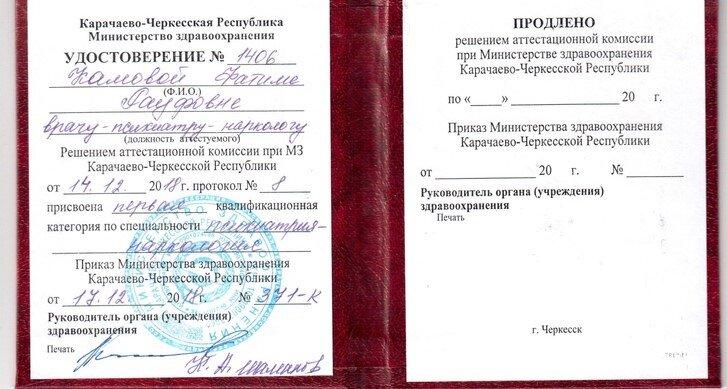 Карачаево-Черкесская Республика
Министерство здравоохранения
УДОСТОВЕРЕНИЕ № 1406
Камовой Фатиме
(Ф.И.О.)
Рауфовне
врачу-психиатру-наркологу
(должность аттестуемого)
Решением аттестационной комиссии при МЗ
Карачаево-Черкесской Республики
от 14.12. 2018г. протокол № 8
присвоена первая квалификационная
категория по специальности психиатрия-
наркология
Приказ Министерства здравоохранения
Карачаево-Черкесской Республики
от 17.12 2018г. № 371-К
Руководитель органа (учреждения)
здравоохранения
Печать
ПРОДЛЕНО
решением аттестационной комиссии
при Министерстве здравоохранения
Карачаево-Черкесской Республики
по «_____» ____________ 20 г.
Приказ Министерства здравоохранения
Карачаево-Черкесской Республики
от ____________ 20 г. № ______
Руководитель органа (учреждения)
здравоохранения
Печать
г. Черкесск